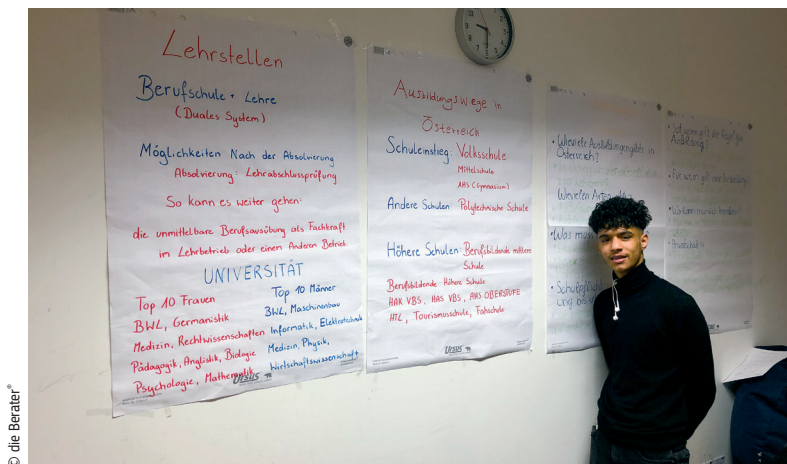 Lehrstellen
Berufschule + Lehre
(Duales System)
Möglichkeiten Nach der Absolvierung
Absolvierung: Lehrabschlussprüfung
So kann es weiter gehen:
die unmittelbare Berufsausübung als Fachkraft
im Lehrbetrieb oder einen Anderen Betrieb
UNIVERSITÄT
Top 10 Frauen
BWL, Germanistik
Medizin, Rechtwissenschaften
Pädagogik, Anglistik, Biologie
Psychologie, Mathematik
Top 10 Männer
BWL, Maschinenbau
Informatik, Elektrotechnik
Medizin, Physik,
Wirtschaftswissenschaft
Ursus
Ausbildungswege in
Österreich
Schuleinstieg: Volksschule
Mittelschule
AHS (Gymnasium)
Andere Schulen: Polytechnische Schule
Höhere Schulen: Berufsbildende mittlere
Schule
Berufsbildende Höhere Schule
HAK VBS, HAS VBS, AHS OBERSTUFE
HTL, Tourismusschule, Fahschule
Ursus
• Wieviele Ausbildungen gibts in
Österreich?
Wievielen Arten
• Was muss
• Schulpflicht
weg bis
Ausbildung?
• Für wen gilt
© die Berater®